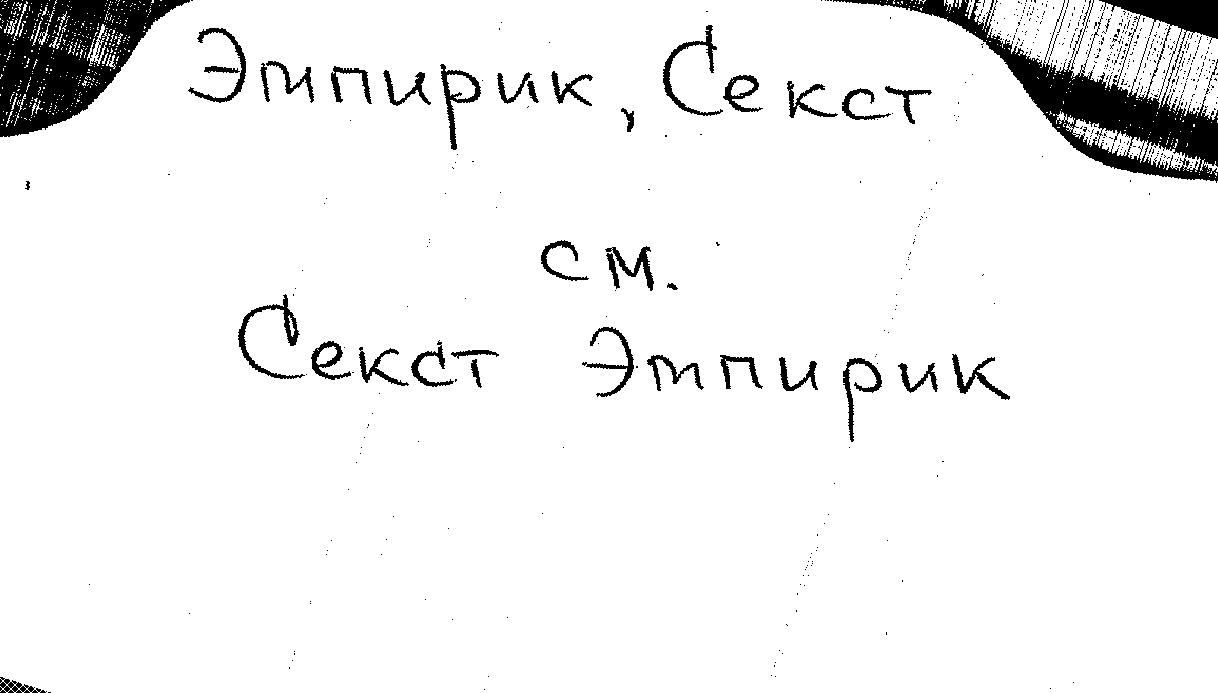 Эмпирик, Секст
см.
Секст Эмпирик